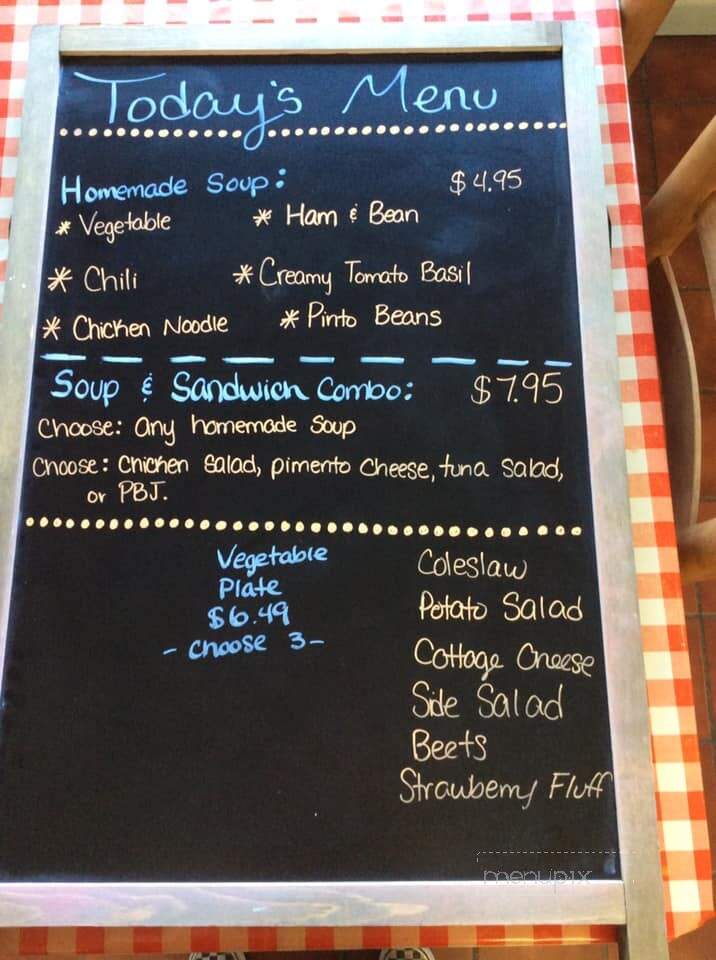 Today's Menu
Homemade Soup: $4.95
* Vegetable * Ham & Bean
* Chili * Creamy Tomato Basil
* Chicken Noodle * Pinto Beans
Soup & Sandwich Combo: $7.95
Choose: any homemade Soup
Choose: Chicken Salad, pimento Cheese, tuna Salad,
or PBJ.
Vegetable
Plate
$6.49
- Choose 3 -
Coleslaw
Potato Salad
Cottage Cheese
Side Salad
Beets
Strawberry Fluff
menupix